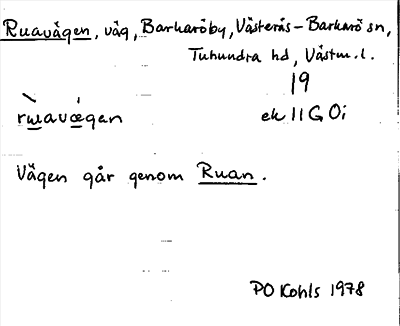 Ruavägen, väg, Barkaröby, Västerås-Barkarö sn,
Tuhundra hd, Västm. l.
19
rɯ̀avǽgan ek 11G 0i
Vägen går genom Ruan.
PO Kohls 1978